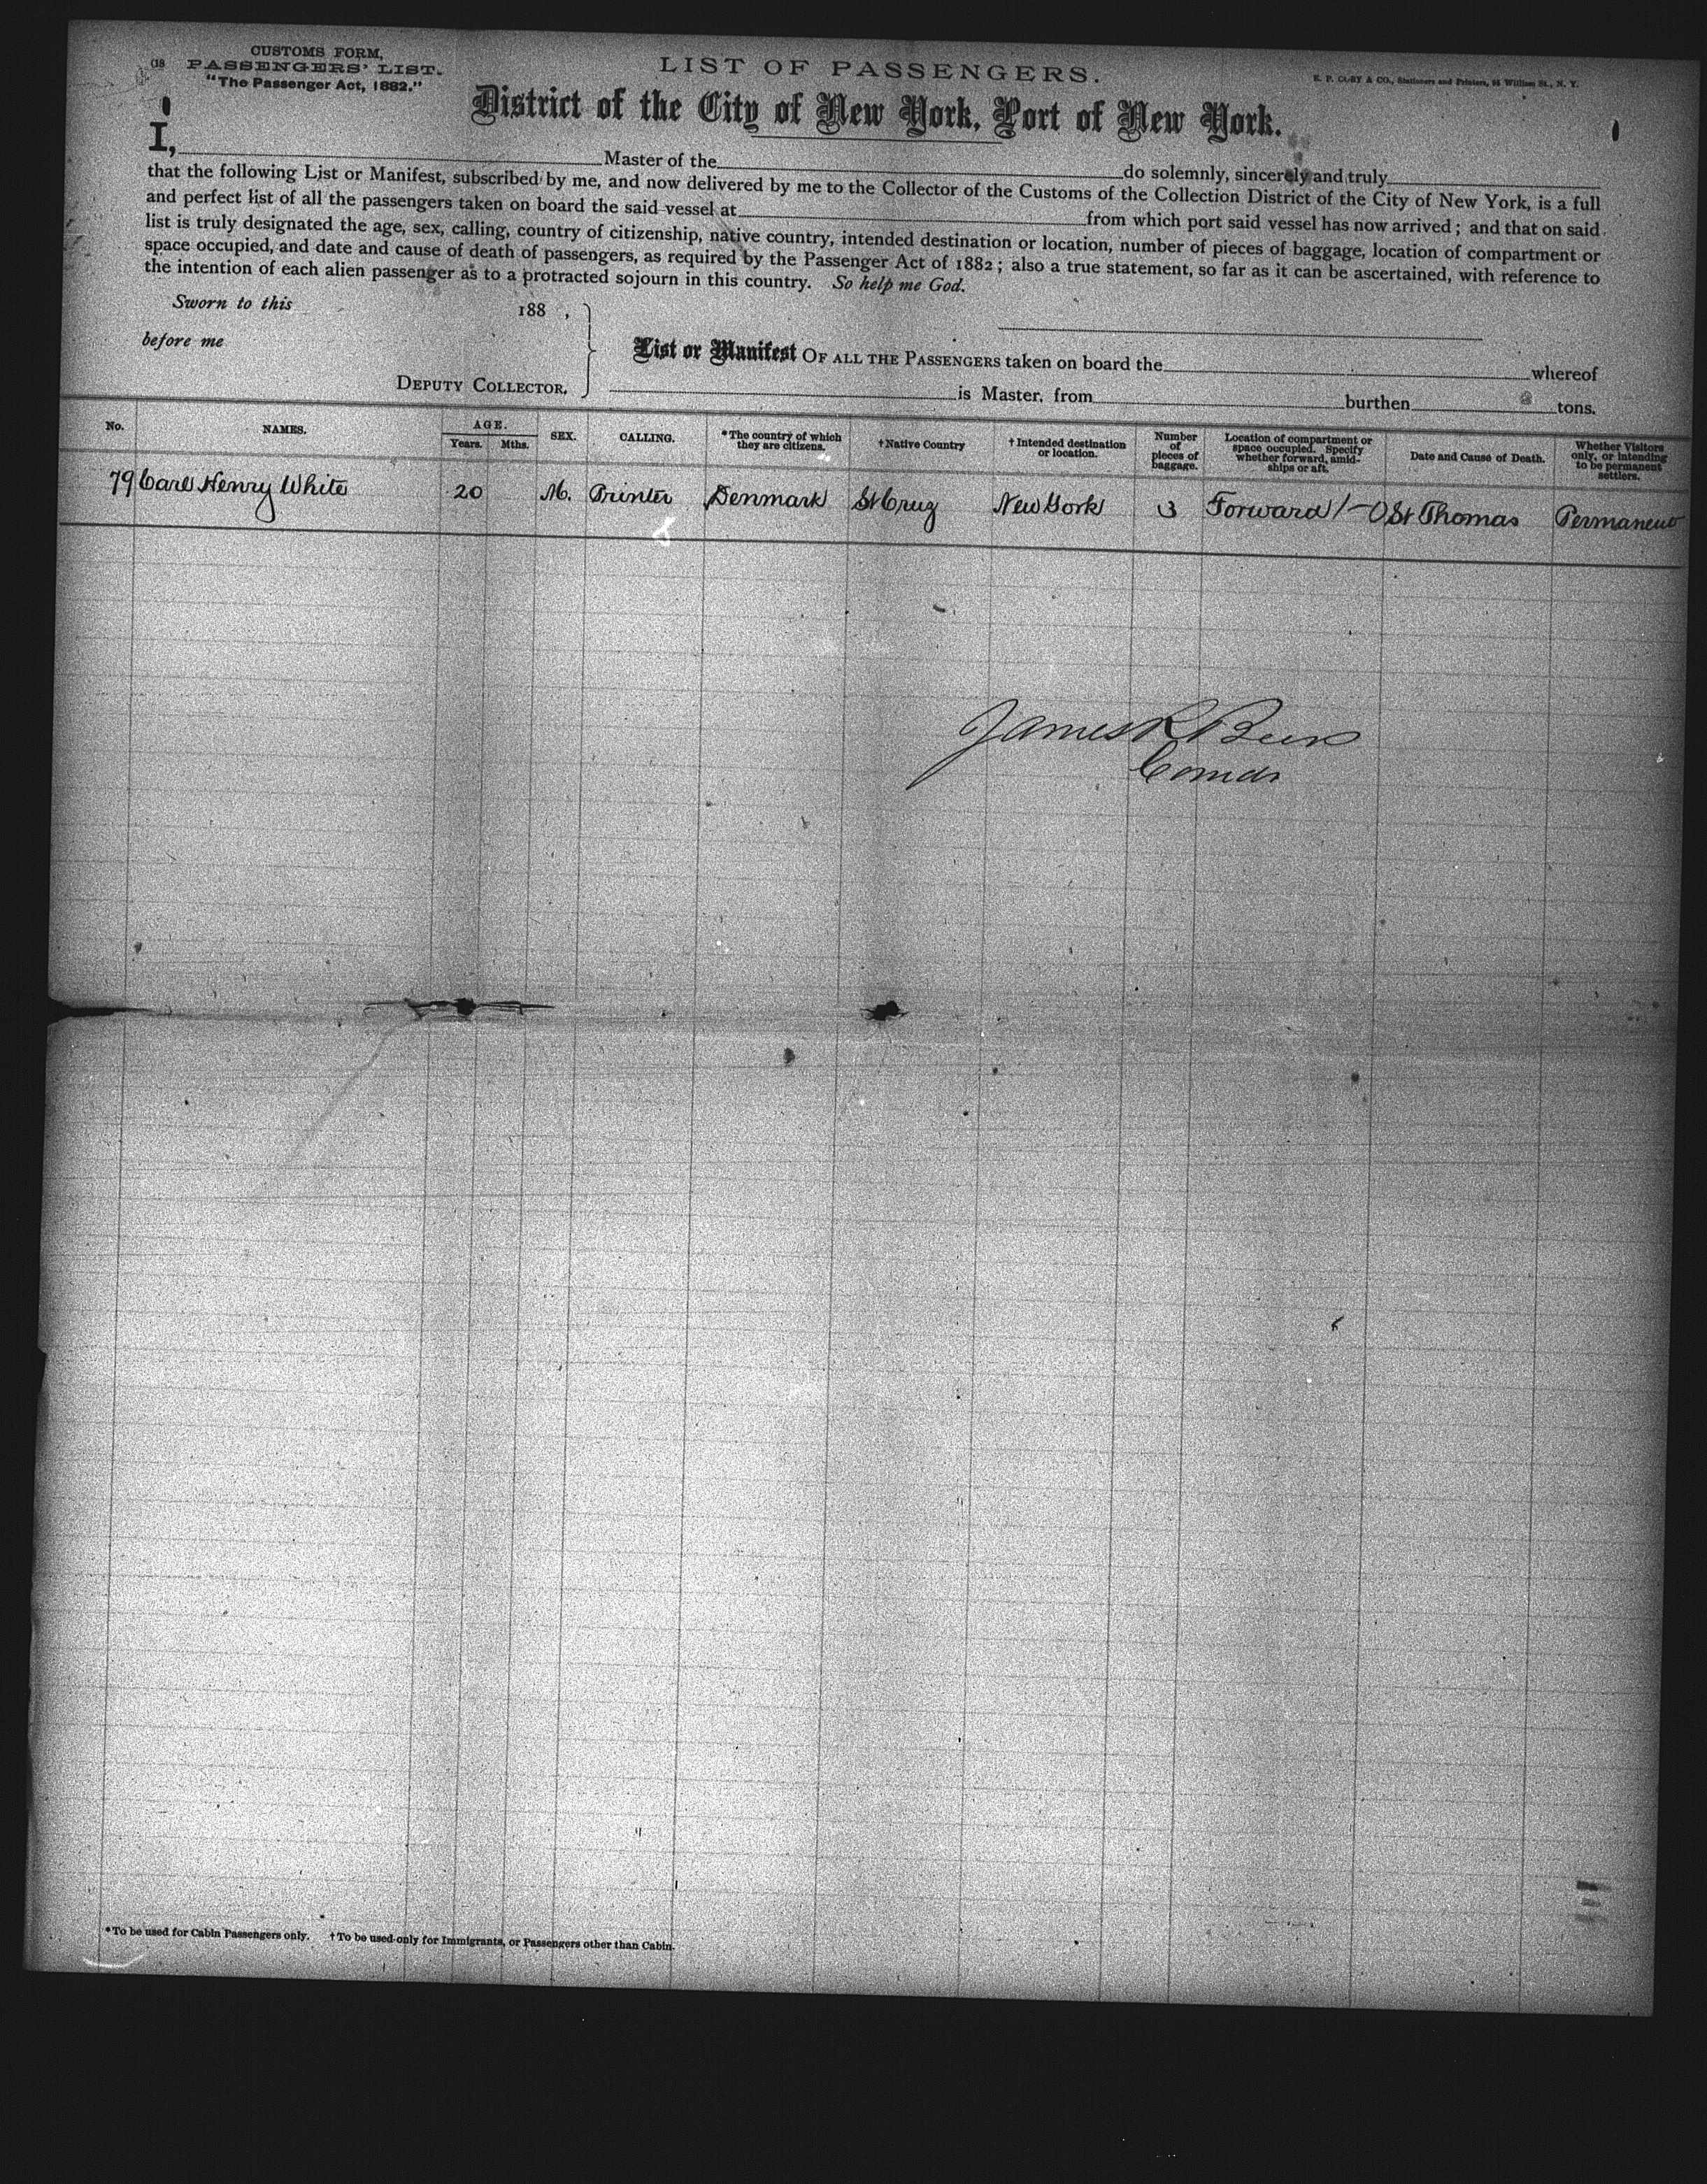 CUSTOMS FORM,
PASSENGERS' LIST.
"The Passenger Act, 1882."
LIST OF PASSENGERS.
District of the City of New York, Port of New York.
I, Master of the do solemnly, sincerely and truly
that the following List or Manifest, subscribed by me, and now delivered by me to the Collector of the Customs of the Collection District of the City of New York, is a full
and perfect list of all the passengers taken on board the said vessel at from which port said vessel has now arrived; and that on said
list is truly designated the age, sex, calling, country of citizenship, native country, intended destination or location, number of pieces of baggage, location of compartment or
space occupied, and date and cause of death of passengers, as required by the Passenger Act of 1882; also a true statement, so far as it can be ascertained, with reference to
the intention of each alien passenger as to a protracted sojourn in this country. So help me God.
Sworn to this 188 ,
before me
DEPUTY COLLECTOR.
List or Manifest OF ALL THE PASSENGERS taken on board the whereof
is Master, from burthen tons.
No. NAMES. AGE. Years. Mths. SEX. CALLING. *The country of which they are citizens. †Native Country †Intended destination or location. Number of pieces of baggage. Location of compartment or space occupied. Specify whether forward, amidships or aft. Date and Cause of Death. Whether Visitors only, or intending to be permanent settlers.
79 Carl Henry White 20 M. Printer Denmark St Cruz New York 3 Forward St Thomas Permanent
James R Beers
Comdr
*To be used for Cabin Passengers only. †To be used only for Immigrants, or Passengers other than Cabin.